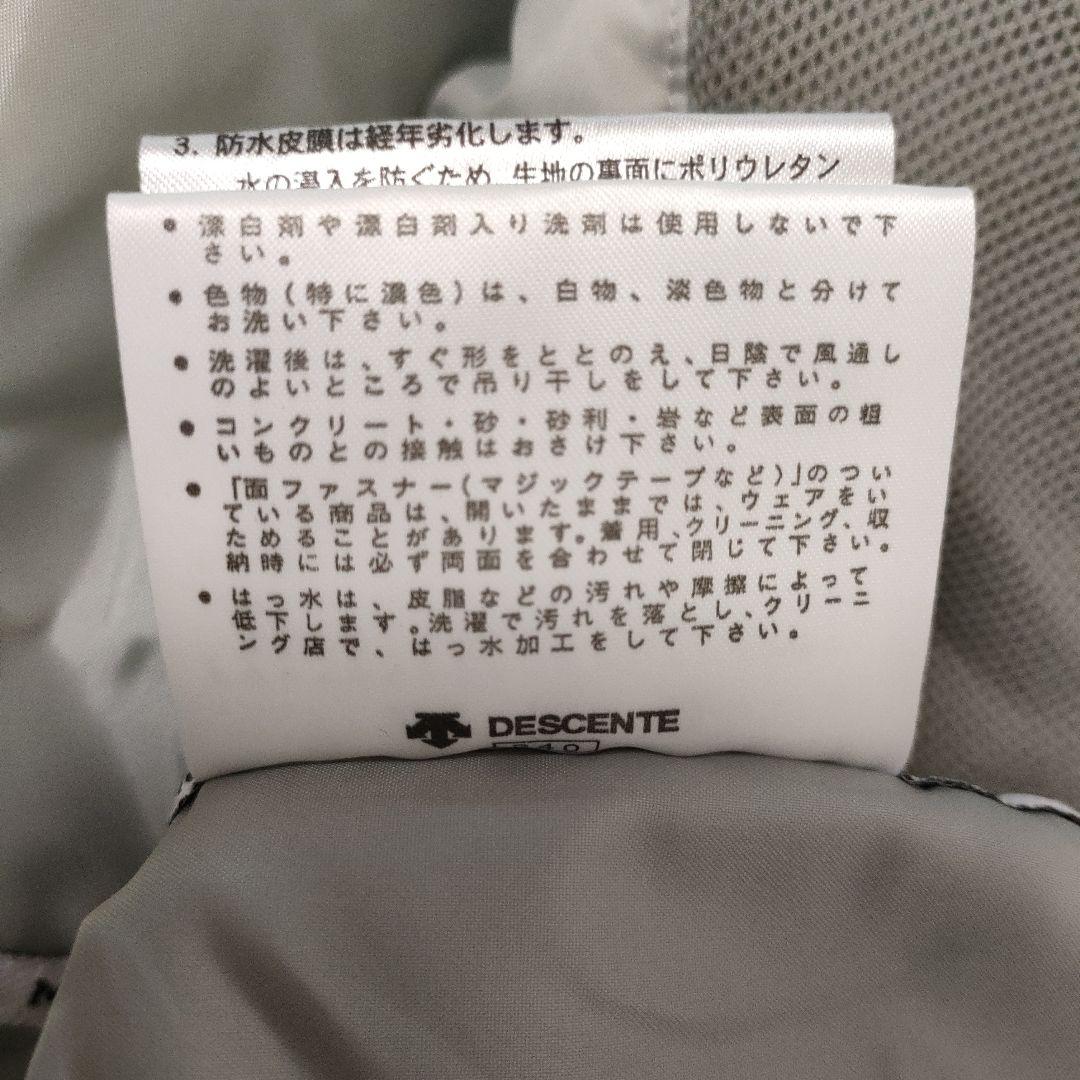 3. 防水皮膜は経年劣化します。
水の浸入を防ぐため、生地の裏面にポリウレタン
• 漂白剤や漂白剤入り洗剤は使用しないで下
さい。
• 色物(特に濃色)は、白物、淡色物と分けて
お洗い下さい。
• 洗濯後は、すぐ形をととのえ、日陰で風通し
のよいところで吊り干しをして下さい。
• コンクリート・砂・砂利・岩など表面の粗
いものとの接触はおさけ下さい。
• 「面ファスナー(マジックテープなど)」のつい
ている商品は、開いたままでは、ウェアをい
ためることがあります。着用、クリーニング、収
納時には必ず両面を合わせて閉じて下さい。
• はっ水は、皮脂などの汚れや摩擦によって
低下します。洗濯で汚れを落とし、クリーニ
ング店で、はっ水加工をして下さい。
DESCENTE